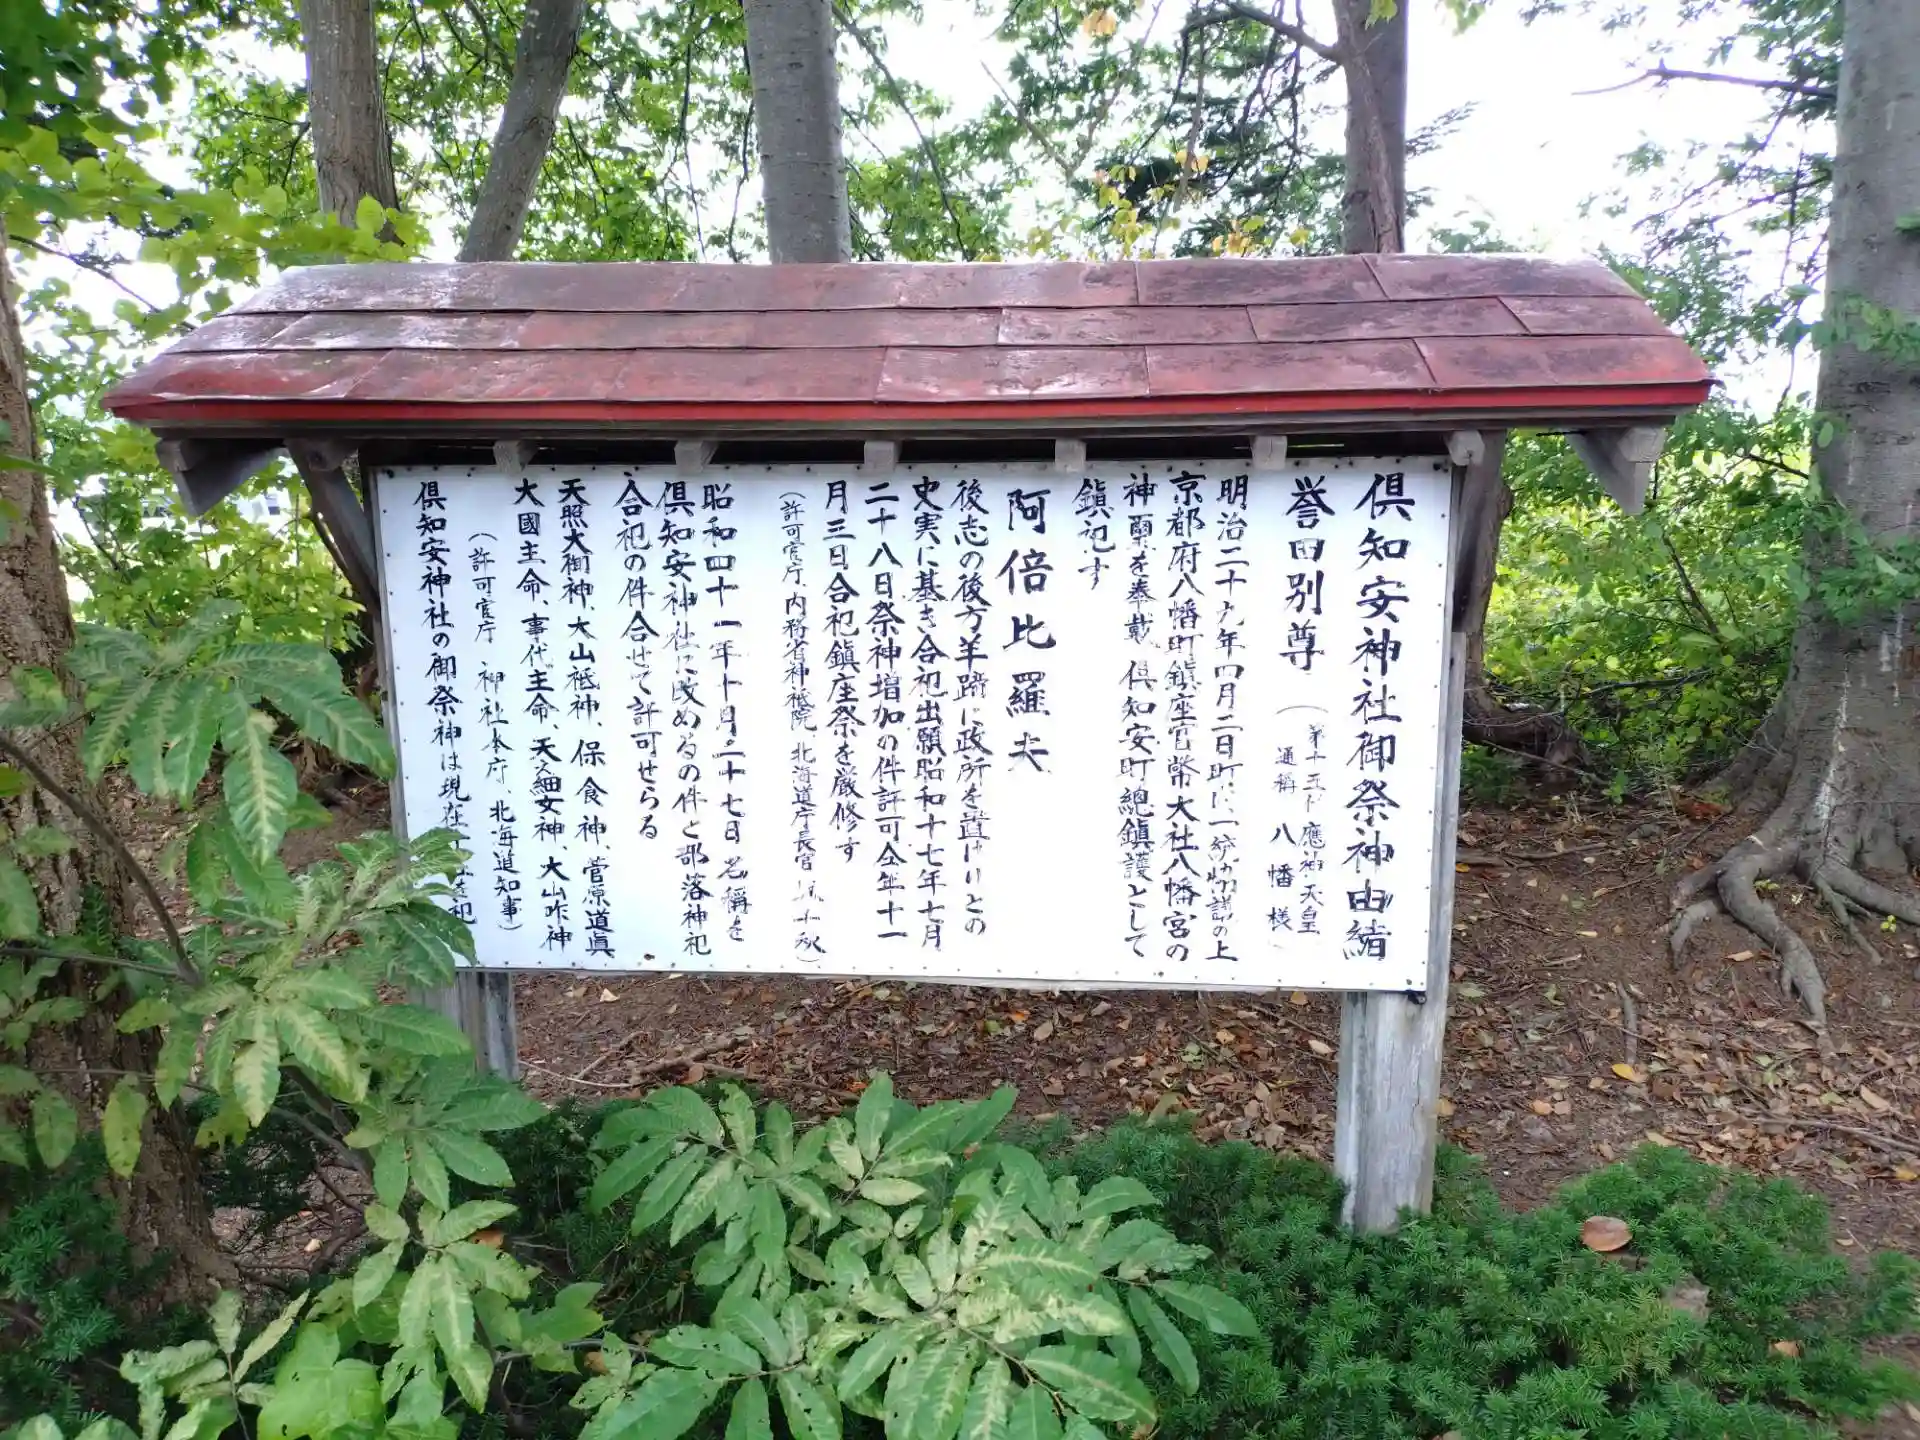 倶知安神社御祭神由緒
誉田別尊
（第十五代 應神天皇
通稱 八幡様）
明治二十九年四月二日町に一統協議の上
京都府八幡町鎮座官幣大社八幡宮の
神璽を奉戴 倶知安町總鎮護として
鎮祀す
阿倍比羅夫
後志の後方羊蹄に政所を置けりとの
史実に基き合祀出願昭和十七年七月
二十八日祭神増加の件許可仝年十一
月三日合祀鎮座祭を厳修す
（許可官庁、内務省神祗院 北海道庁長官）
昭和四十一年十月二十七日 名稱を
倶知安神社に改めるの件と部落神祀
合祀の件合せて許可せらる
天照大御神、大山祗神、保食神、菅原道眞
大國主命、事代主命、天之細女神、大山咋神
（許可官庁 神社本庁、北海道知事）
倶知安神社の御祭神は現在十 を祀